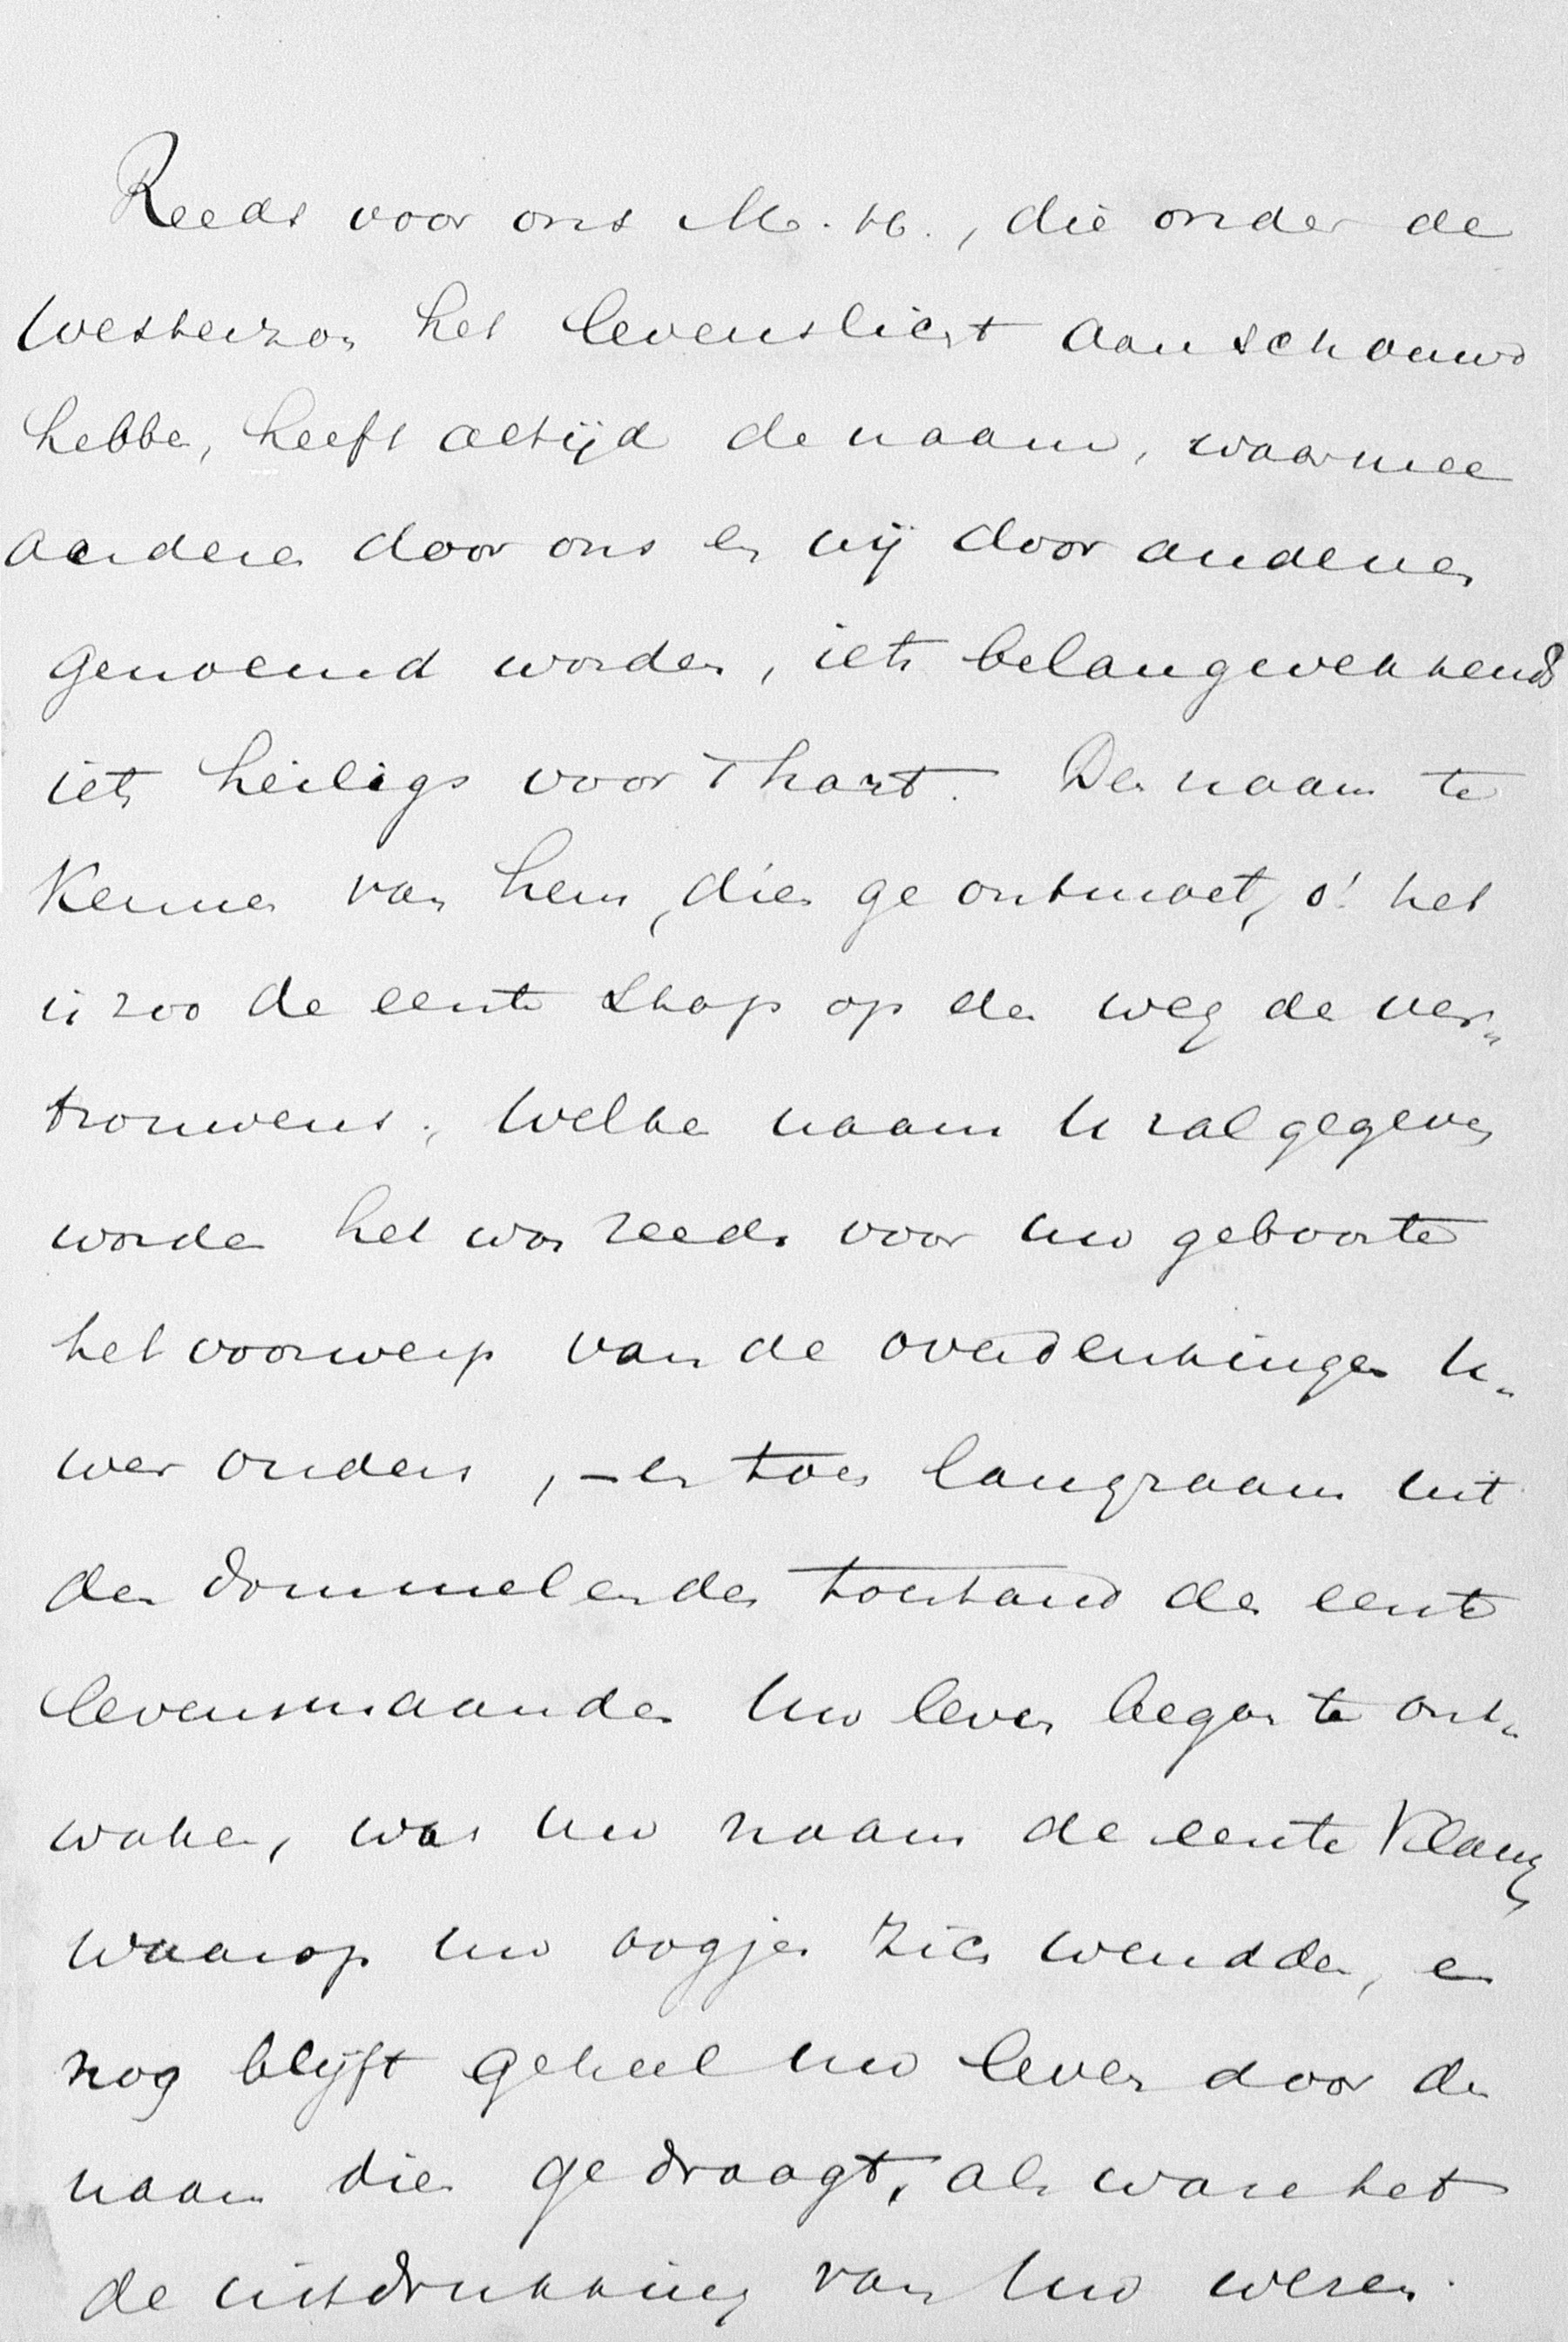 Reeds voor ons M. H., die onder de
Westerzon het levenslicht aanschouwd
hebben, heeft altijd de naam, waarmee
anderen door ons en wij door anderen
genoemd worden, iets belangwekkends
iets heiligs voor 't hart. Den naam te
kennen van hem, dien ge ontmoet, o! het
is zoo de eerste stap op den weg des ver„
trouwens. Welke naam U zal gegeven
worden het was reeds voor uw geboorte
het voorwerp van de overdenkingen U„
wer ouders, – en toen langzaam uit
den dommelenden toestand der eerste
levensmaanden Uw leven begon te ont„
waken, was Uw naam de eerste klank
waarop Uw oogjes zich wendden, en
nog blijft geheel Uw leven door de
naam dien ge draagt, als ware het
de uitdrukking van Uw wezen.